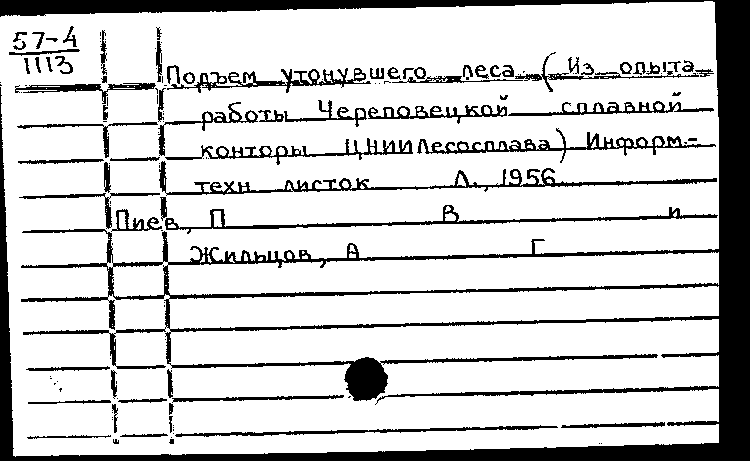 57-4
1113
Подъем утонувшего леса (Из опыта
работы Череповецкой сплавной
конторы ЦНИИЛесосплава) Информ.-
техн листок Л., 1956
Пиев, П В и
Жильцов, А Г